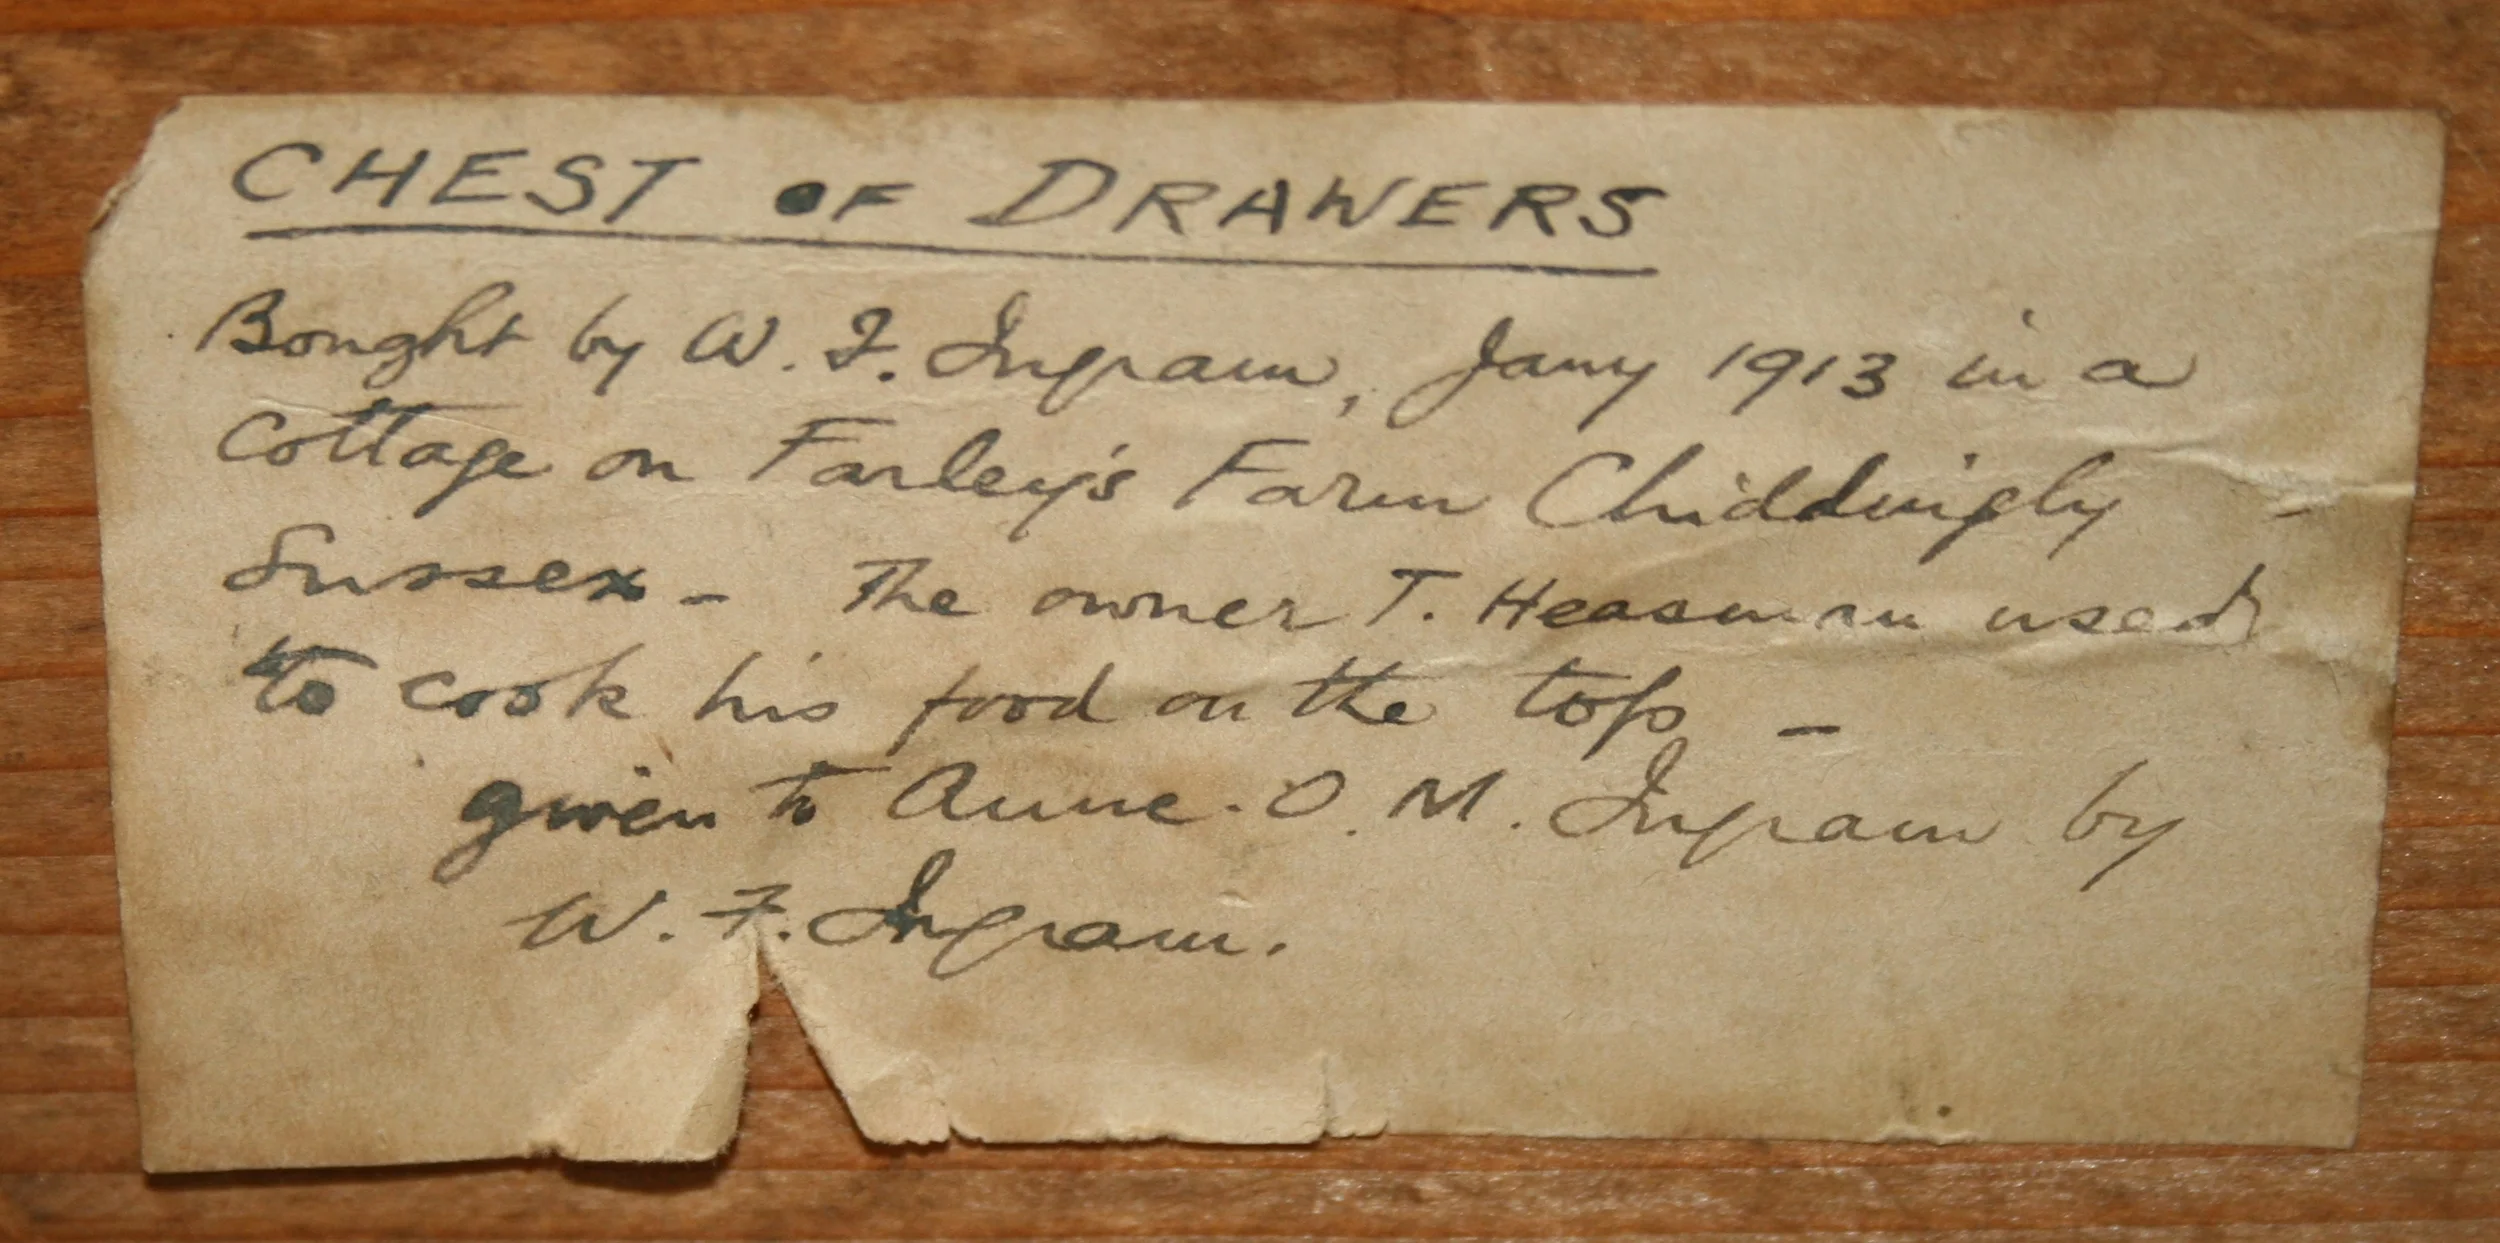 CHEST OF DRAWERS
Bought by W. F. Ingram, Jany 1913 in a
Cottage on Farley's Farm Chiddingly -
Sussex - The owner T. Heasman used
to cook his food on the top -
given to Anne. O. M. Ingram by
W. F. Ingram.